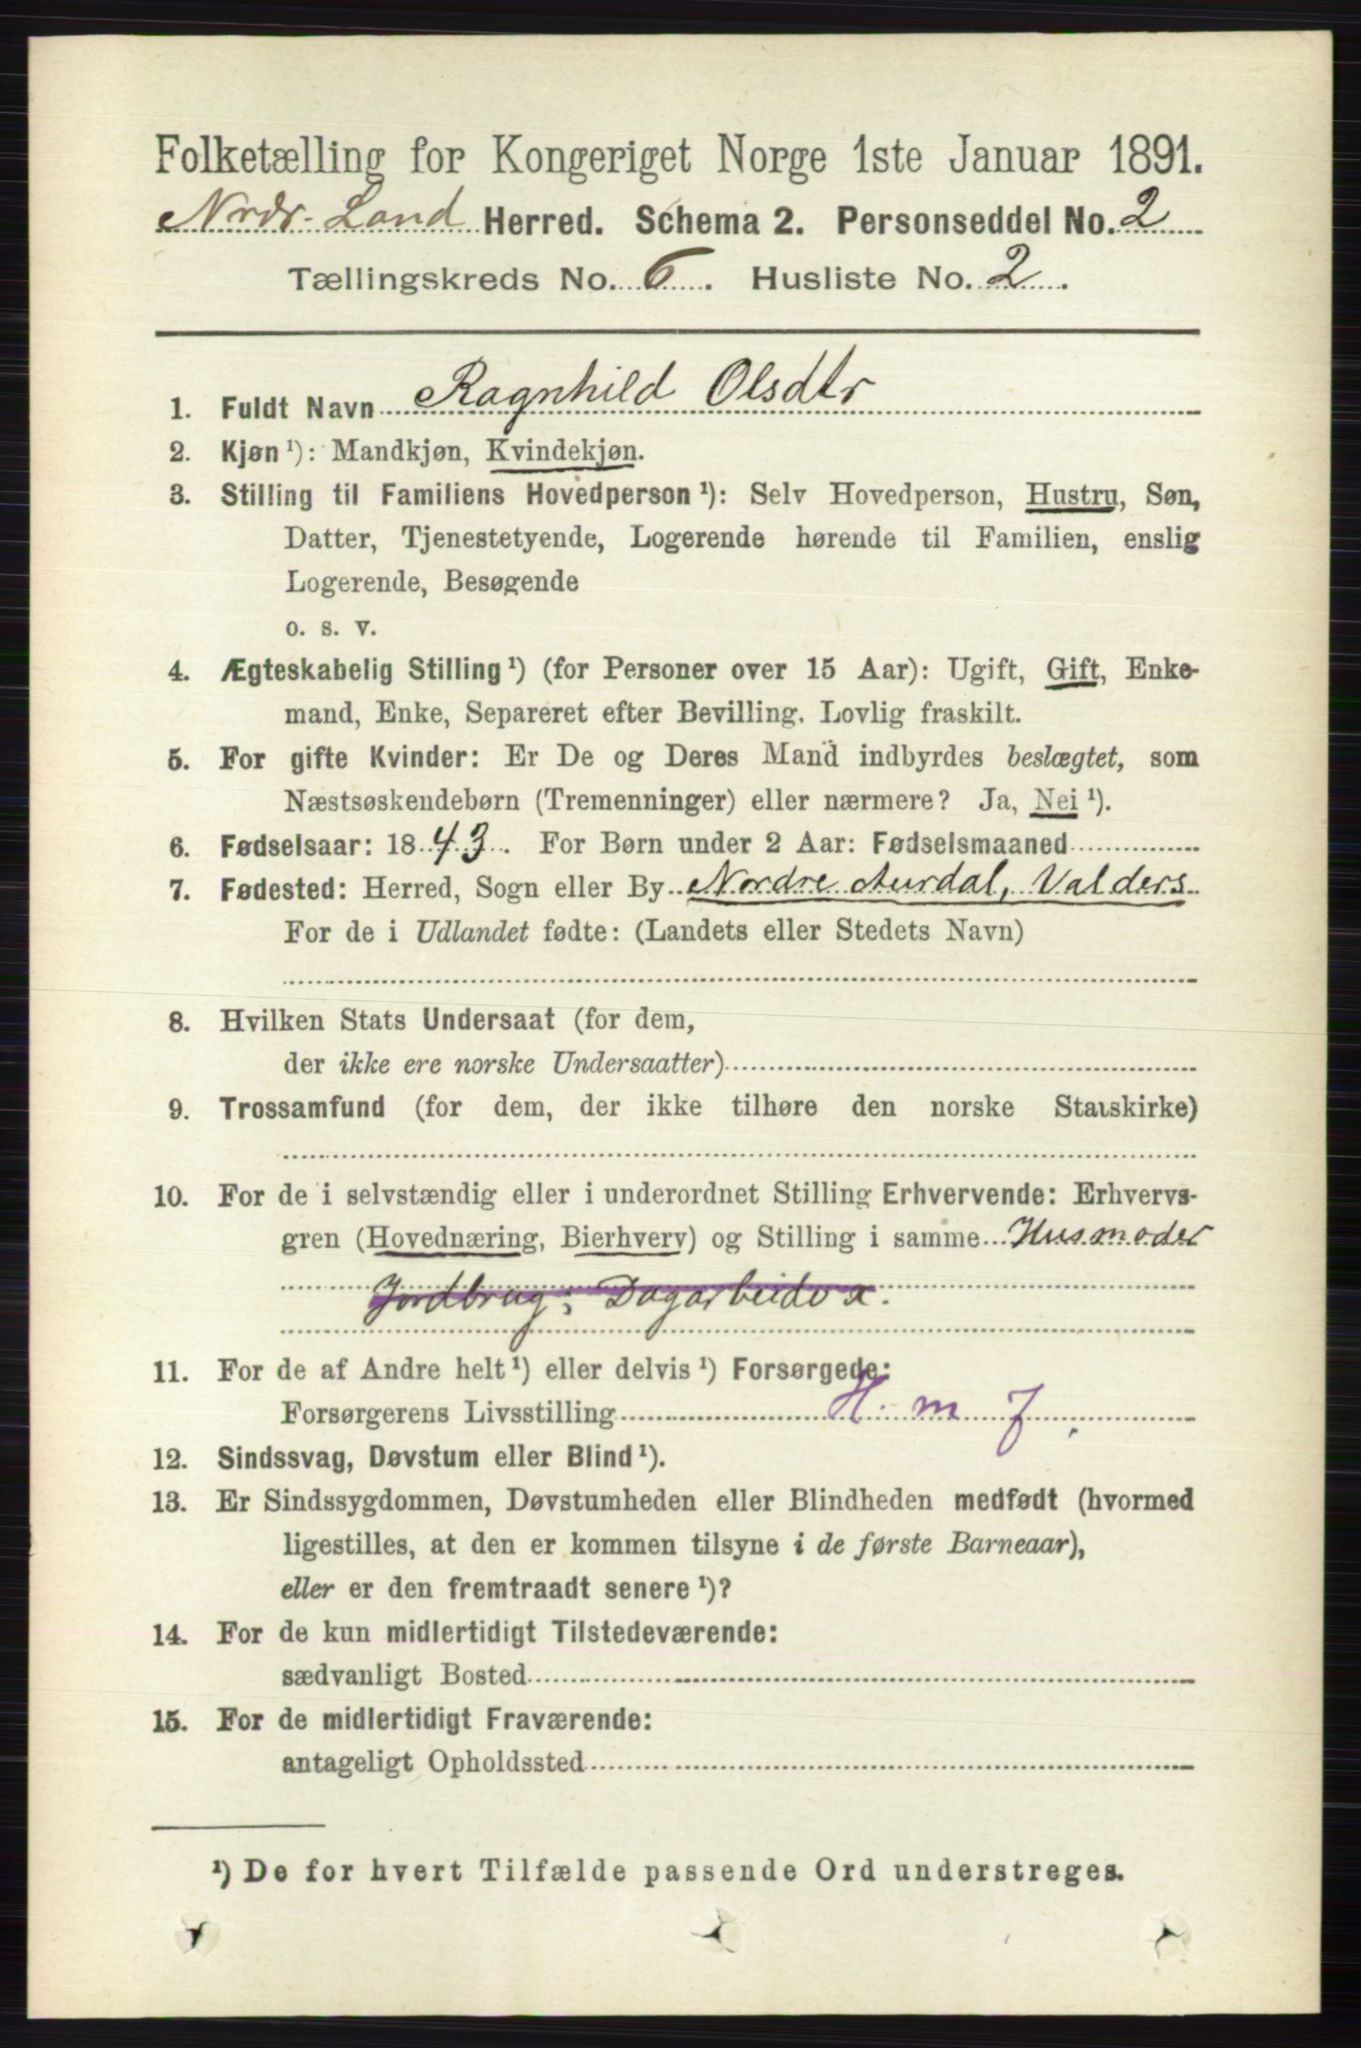 Folketælling for Kongeriget Norge 1ste Januar 1891.
Nrdr. Land Herred. Schema 2. Personseddel No. 2
Tællingskreds No. 6. Husliste No. 2.
1. Fuldt Navn Ragnhild Olsdtr
2. Kjøn ¹): Mandkjøn, Kvindekjøn.
3. Stilling til Familiens Hovedperson ¹): Selv Hovedperson, Hustru, Søn,
Datter, Tjenestetyende, Logerende hørende til Familien, enslig
Logerende, Besøgende
o. s. v.
4. Ægteskabelig Stilling ¹) (for Personer over 15 Aar): Ugift, Gift, Enke-
mand, Enke, Separeret efter Bevilling. Lovlig fraskilt.
5. For gifte Kvinder: Er De og Deres Mand indbyrdes beslægtet, som
Næstsøskendebørn (Tremenninger) eller nærmere? Ja, Nei ¹).
6. Fødselsaar: 1843. For Børn under 2 Aar: Fødselsmaaned
7. Fødested: Herred, Sogn eller By Nordre Aurdal, Valders
For de i Udlandet fødte: (Landets eller Stedets Navn)
8. Hvilken Stats Undersaat (for dem,
der ikke ere norske Undersaatter)
9. Trossamfund (for dem, der ikke tilhøre den norske Statskirke)
10. For de i selvstændig eller i underordnet Stilling Erhvervende: Erhvervs-
gren (Hovednæring, Bierhverv) og Stilling i samme Husmoder
Jordbrug; Dagarbeide x.
11. For de af Andre helt ¹) eller delvis ¹) Forsørgede:
Forsørgerens Livsstilling H. m f.
12. Sindssvag, Døvstum eller Blind ¹).
13. Er Sindssygdommen, Døvstumheden eller Blindheden medfødt (hvormed
ligestilles, at den er kommen tilsyne i de første Barneaar),
eller er den fremtraadt senere ¹)?
14. For de kun midlertidigt Tilstedeværende:
sædvanligt Bosted
15. For de midlertidigt Fraværende:
antageligt Opholdssted
¹) De for hvert Tilfælde passende Ord understreges.